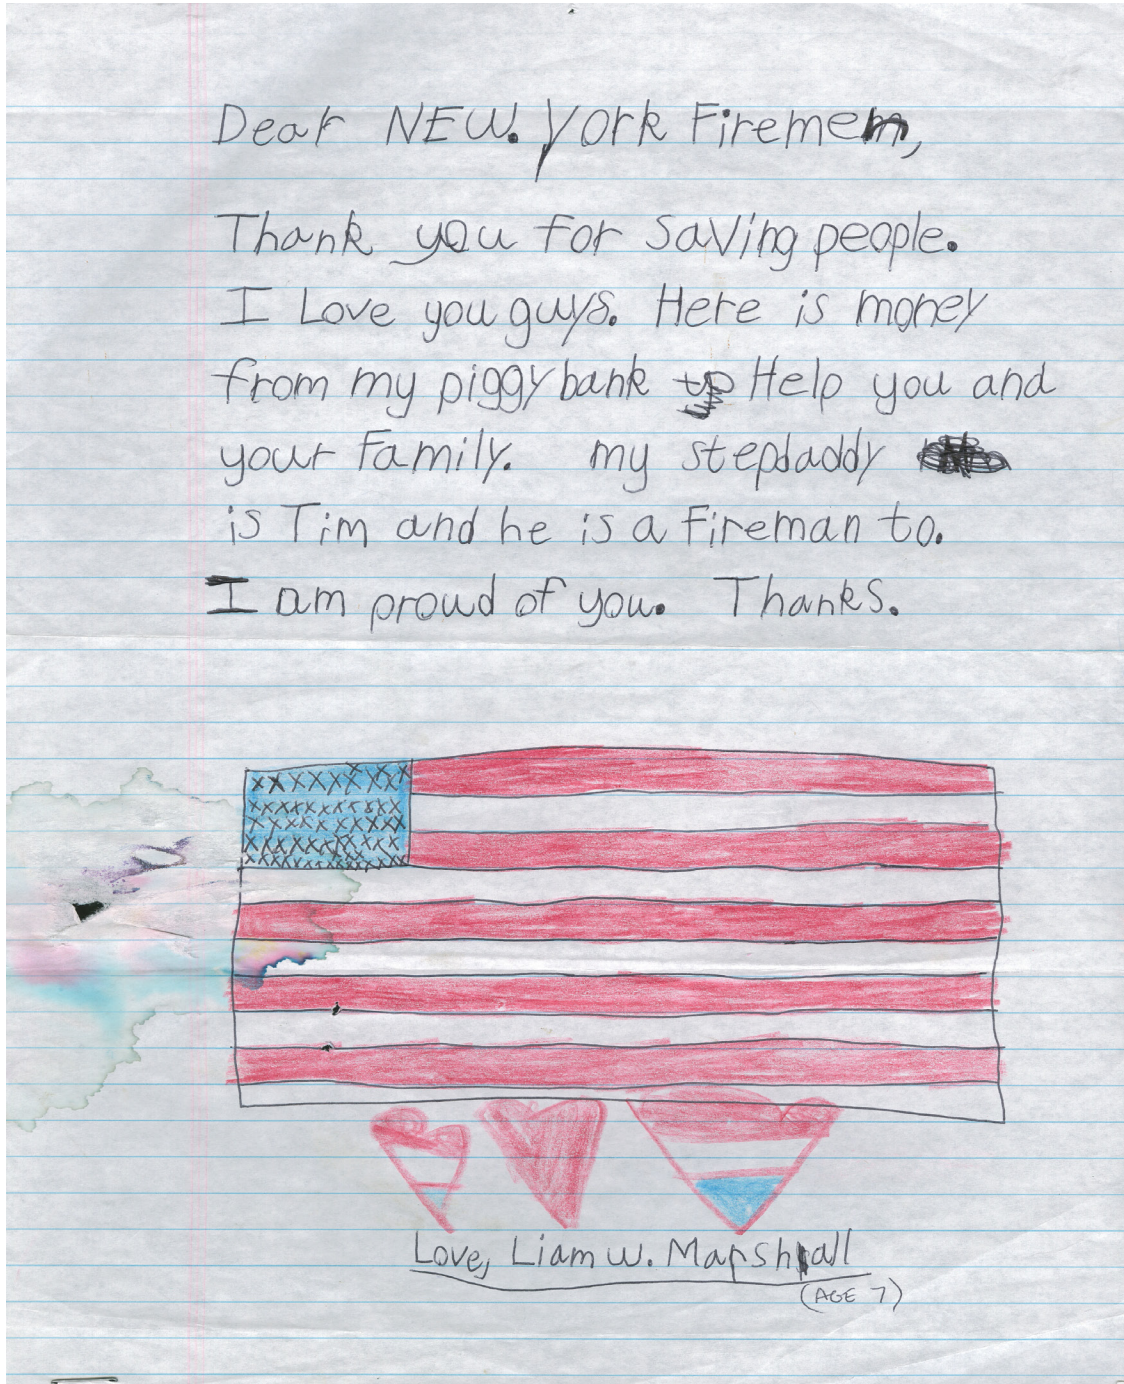 Dear NEW. York Firemen,
Thank you for saving people.
I Love you guys. Here is money
from my piggy bank to Help you and
your family. my stepdaddy
is Tim and he is a fireman to.
I am proud of you. Thanks.
Love, Liam W. Marshall
(AGE 7)